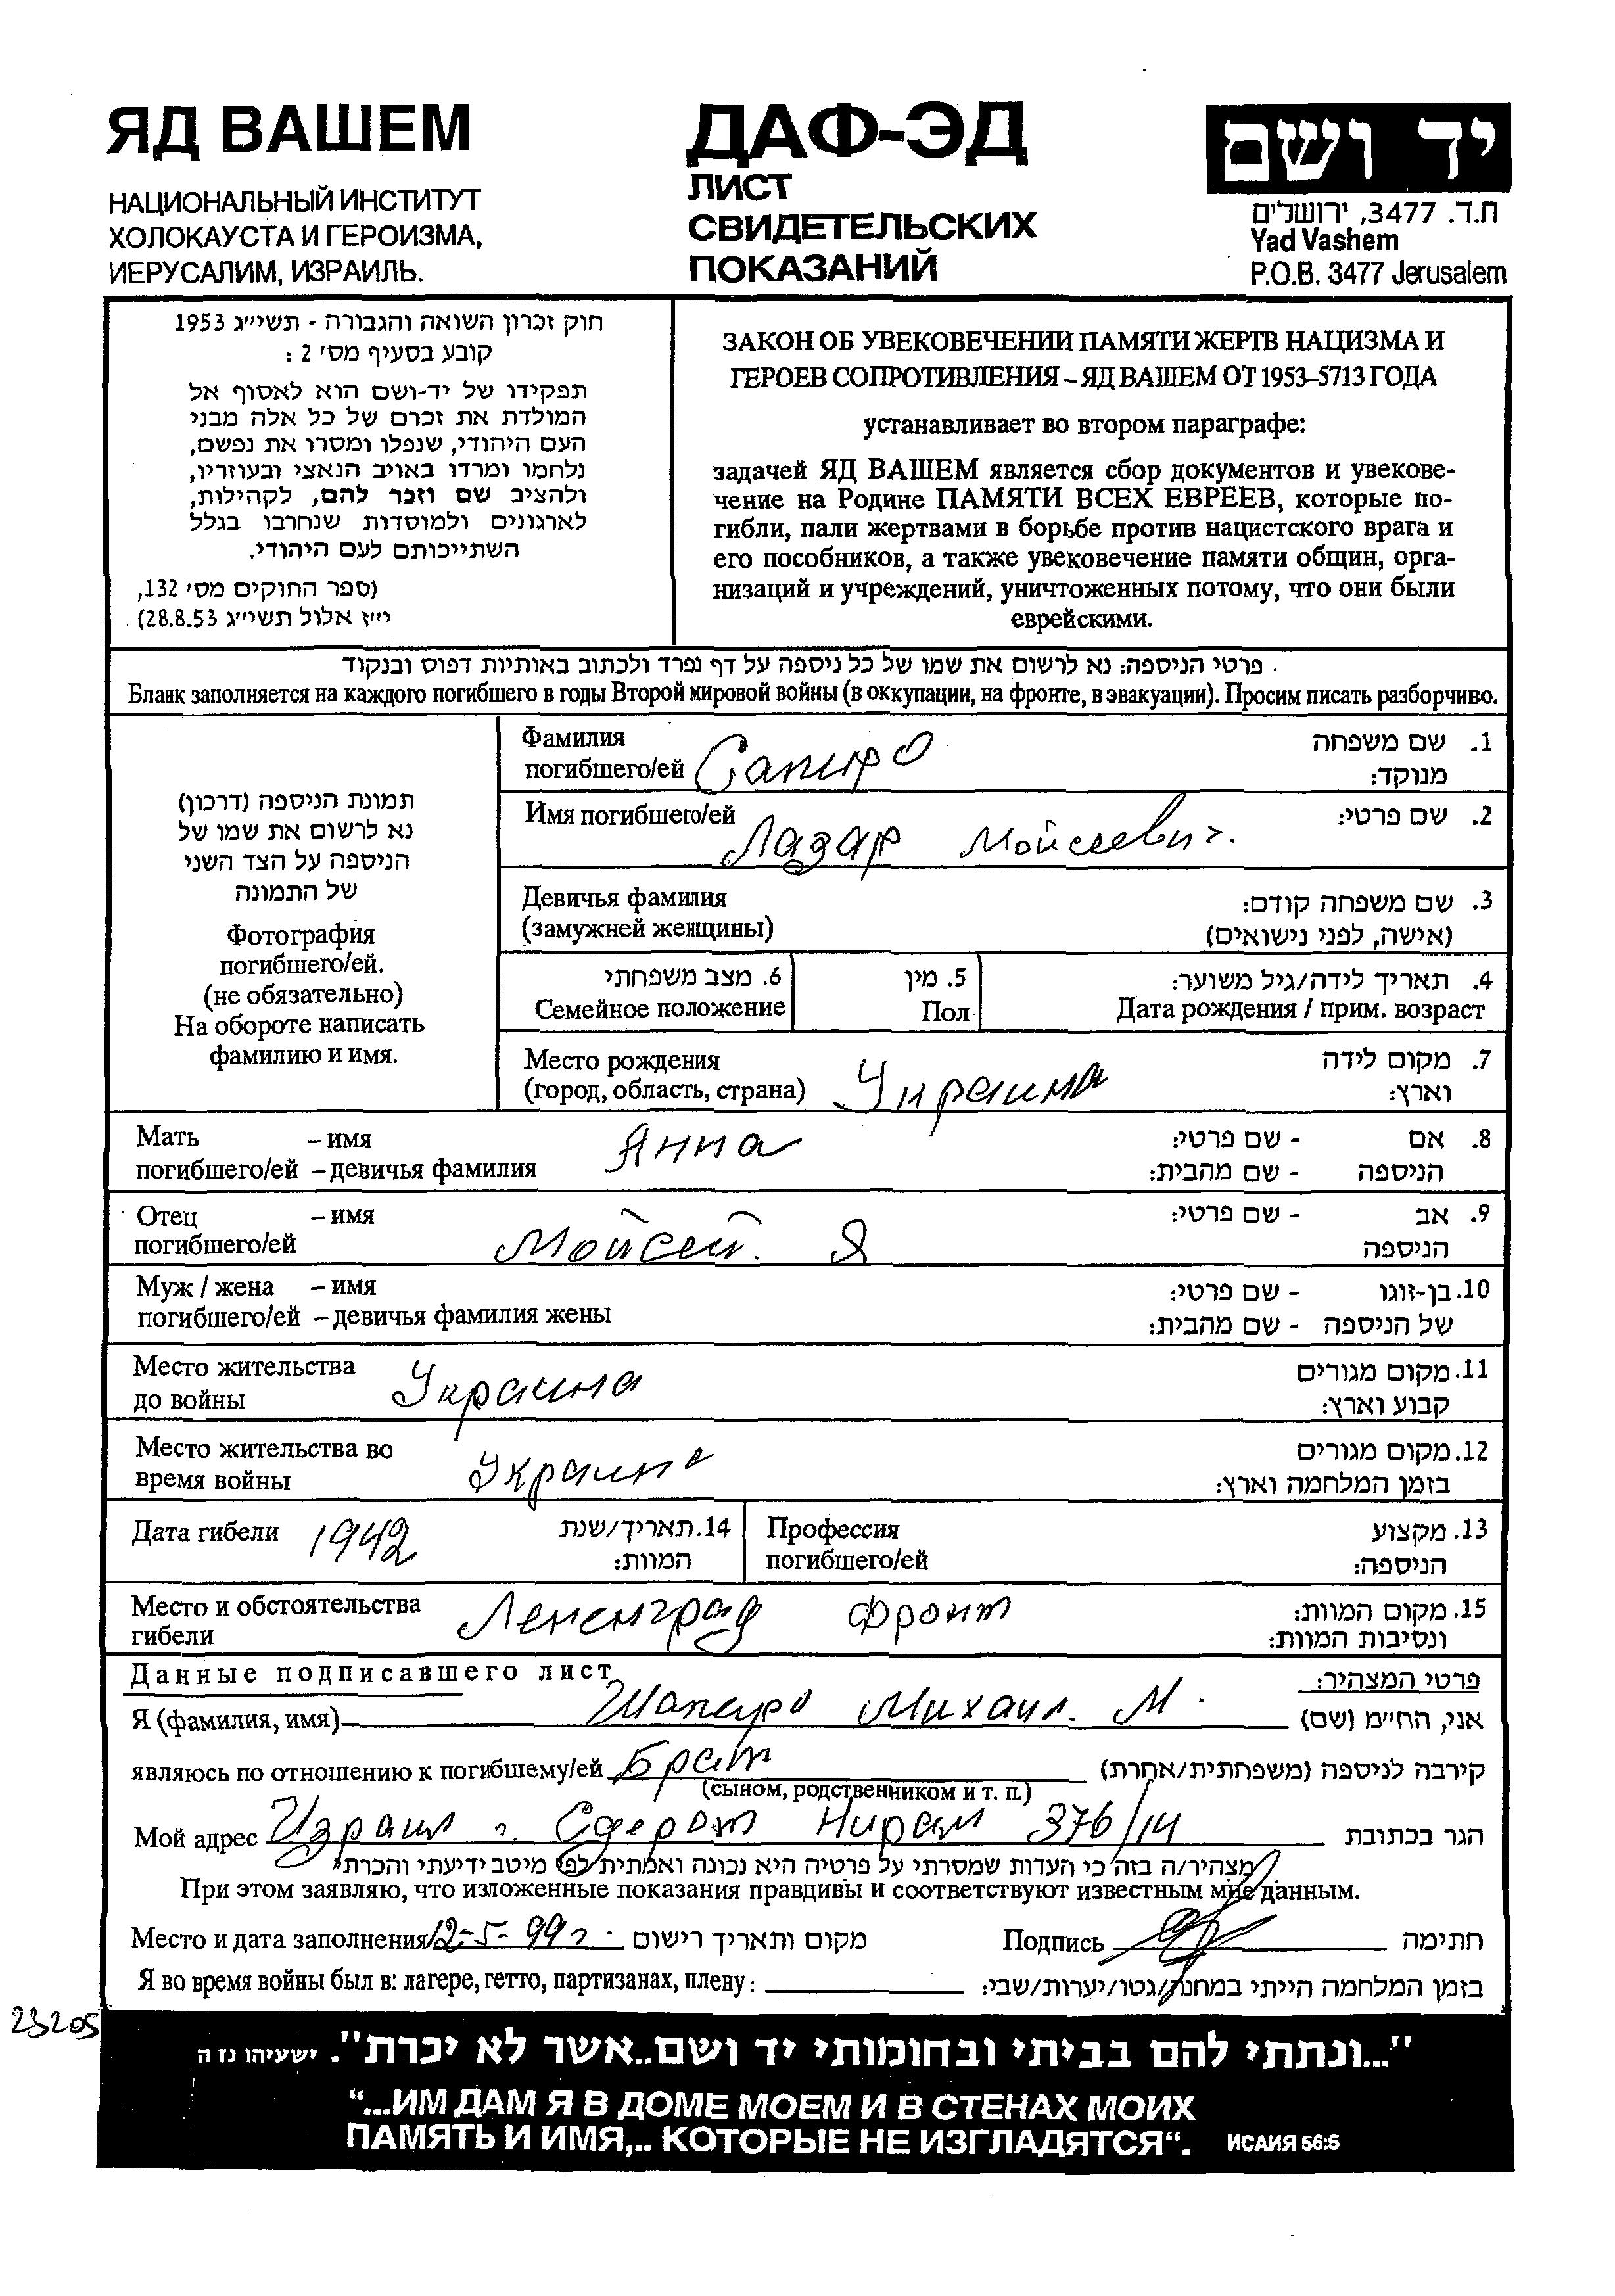 ЯД ВАШЕМ
НАЦИОНАЛЬНЫЙ ИНСТИТУТ
ХОЛОКАУСТА И ГЕРОИЗМА,
ИЕРУСАЛИМ, ИЗРАИЛЬ.
ДАФ-ЭД
ЛИСТ
СВИДЕТЕЛЬСКИХ
ПОКАЗАНИЙ
יד ושם
ת.ד. 3477, ירושלים
Yad Vashem
P.O.B. 3477 Jerusalem
חוק זכרון השואה והגבורה - תשי״ג 1953
קובע בסעיף מס׳ 2 :
תפקידו של יד-ושם הוא לאסוף אל
המולדת את זכרם של כל אלה מבני
העם היהודי, שנפלו ומסרו את נפשם,
נלחמו ומרדו באויב הנאצי ובעוזריו,
ולהציב שם וזכר להם, לקהילות,
לארגונים ולמוסדות שנחרבו בגלל
השתייכותם לעם היהודי.
(ספר החוקים מס׳ 132,
י״ז אלול תשי״ג 28.8.53)
ЗАКОН ОБ УВЕКОВЕЧЕНИИ ПАМЯТИ ЖЕРТВ НАЦИЗМА И
ГЕРОЕВ СОПРОТИВЛЕНИЯ – ЯД ВАШЕМ ОТ 1953–5713 ГОДА
устанавливает во втором параграфе:
задачей ЯД ВАШЕМ является сбор документов и увекове-
чение на Родине ПАМЯТИ ВСЕХ ЕВРЕЕВ, которые по-
гибли, пали жертвами в борьбе против нацистского врага и
его пособников, а также увековечение памяти общин, орга-
низаций и учреждений, уничтоженных потому, что они были
еврейскими.
פרטי הניספה: נא לרשום את שמו של כל ניספה על דף נפרד ולכתוב באותיות דפוס ובנקוד
Бланк заполняется на каждого погибшего в годы Второй мировой войны (в оккупации, на фронте, в эвакуации). Просим писать разборчиво.
תמונת הניספה (דרכון)
נא לרשום את שמו של
הניספה על הצד השני
של התמונה
Фотография
погибшего/ей.
(не обязательно)
На обороте написать
фамилию и имя.
Фамилия 1. שם משפחה
погибшего/ей Сапиро מנוקד:
Имя погибшего/ей 2. שם פרטי:
Лазар Мойсеевич.
Девичья фамилия 3. שם משפחה קודם:
(замужней женщины) (אישה, לפני נישואים)
6. מצב משפחתי 5. מין 4. תאריך לידה/גיל משוער:
Семейное положение Пол Дата рождения / прим. возраст
Место рождения 7. מקום לידה
(город, область, страна) Украина וארץ:
Мать – имя Анна 8. אם - שם פרטי:
погибшего/ей – девичья фамилия הניספה - שם מהבית:
Отец – имя 9. אב - שם פרטי:
погибшего/ей Мойсей. Я הניספה
Муж / жена – имя 10. בן-זוגו - שם פרטי:
погибшего/ей – девичья фамилия жены של הניספה - שם מהבית:
Место жительства Украина 11. מקום מגורים
до войны קבוע וארץ:
Место жительства во 12. מקום מגורים
время войны Украине בזמן המלחמה וארץ:
Дата гибели 1942 14. תאריך/שנת Профессия 13. מקצוע
המוות: погибшего/ей הניספה:
Место и обстоятельства Лененград фронт 15. מקום המוות:
гибели ונסיבות המוות:
Данные подписавшего лист פרטי המצהיר:
Я (фамилия, имя) Шапиро Михаил. М. אני, הח״מ (שם)
являюсь по отношению к погибшему/ей Брат קירבה לניספה (משפחתית/אחרת)
(сыном, родственником и т. п.)
Мой адрес Израил г. Сдерот Нирам 376/14 הגר בכתובת
מצהיר/ה בזה כי העדות שמסרתי על פרטיה היא נכונה ואמתית לפי מיטב ידיעתי והכרתי
При этом заявляю, что изложенные показания правдивы и соответствуют известным мне данным.
Место и дата заполнения 12-5-99г. מקום ותאריך רישום Подпись חתימה
Я во время войны был в: лагере, гетто, партизанах, плену: בזמן המלחמה הייתי במחנה/גטו/יערות/שבי:
23205
"...ונתתי להם בביתי ובחומותי יד ושם..אשר לא יכרת". ישעיהו נז ה
“...ИМ ДАМ Я В ДОМЕ МОЕМ И В СТЕНАХ МОИХ
ПАМЯТЬ И ИМЯ,.. КОТОРЫЕ НЕ ИЗГЛАДЯТСЯ“. ИСАИЯ 56:5